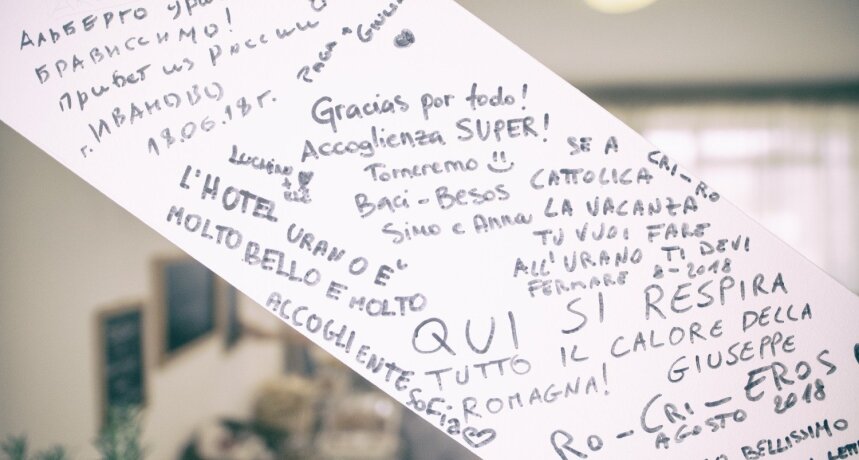 Альберго
БРАВИССИМО!
Привет из России
г. ИВАНОВО
18.06.18 г.
Gracias por todo!
Accoglienza SUPER!
Torneremo
Baci - Besos
Simo e Anna
L'HOTEL URANO E'
MOLTO BELLO E MOLTO
ACCOGLIENTE
SOFIA
SE A
CATTOLICA
LA VACANZA
TU VUOI FARE
ALL'URANO TI DEVI
FERMARE 8-2018
CRI-RO
QUI SI RESPIRA
TUTTO IL CALORE DELLA
ROMAGNA! GIUSEPPE
RO - CRI - EROS
AGOSTO 2018
BELLISSIMO